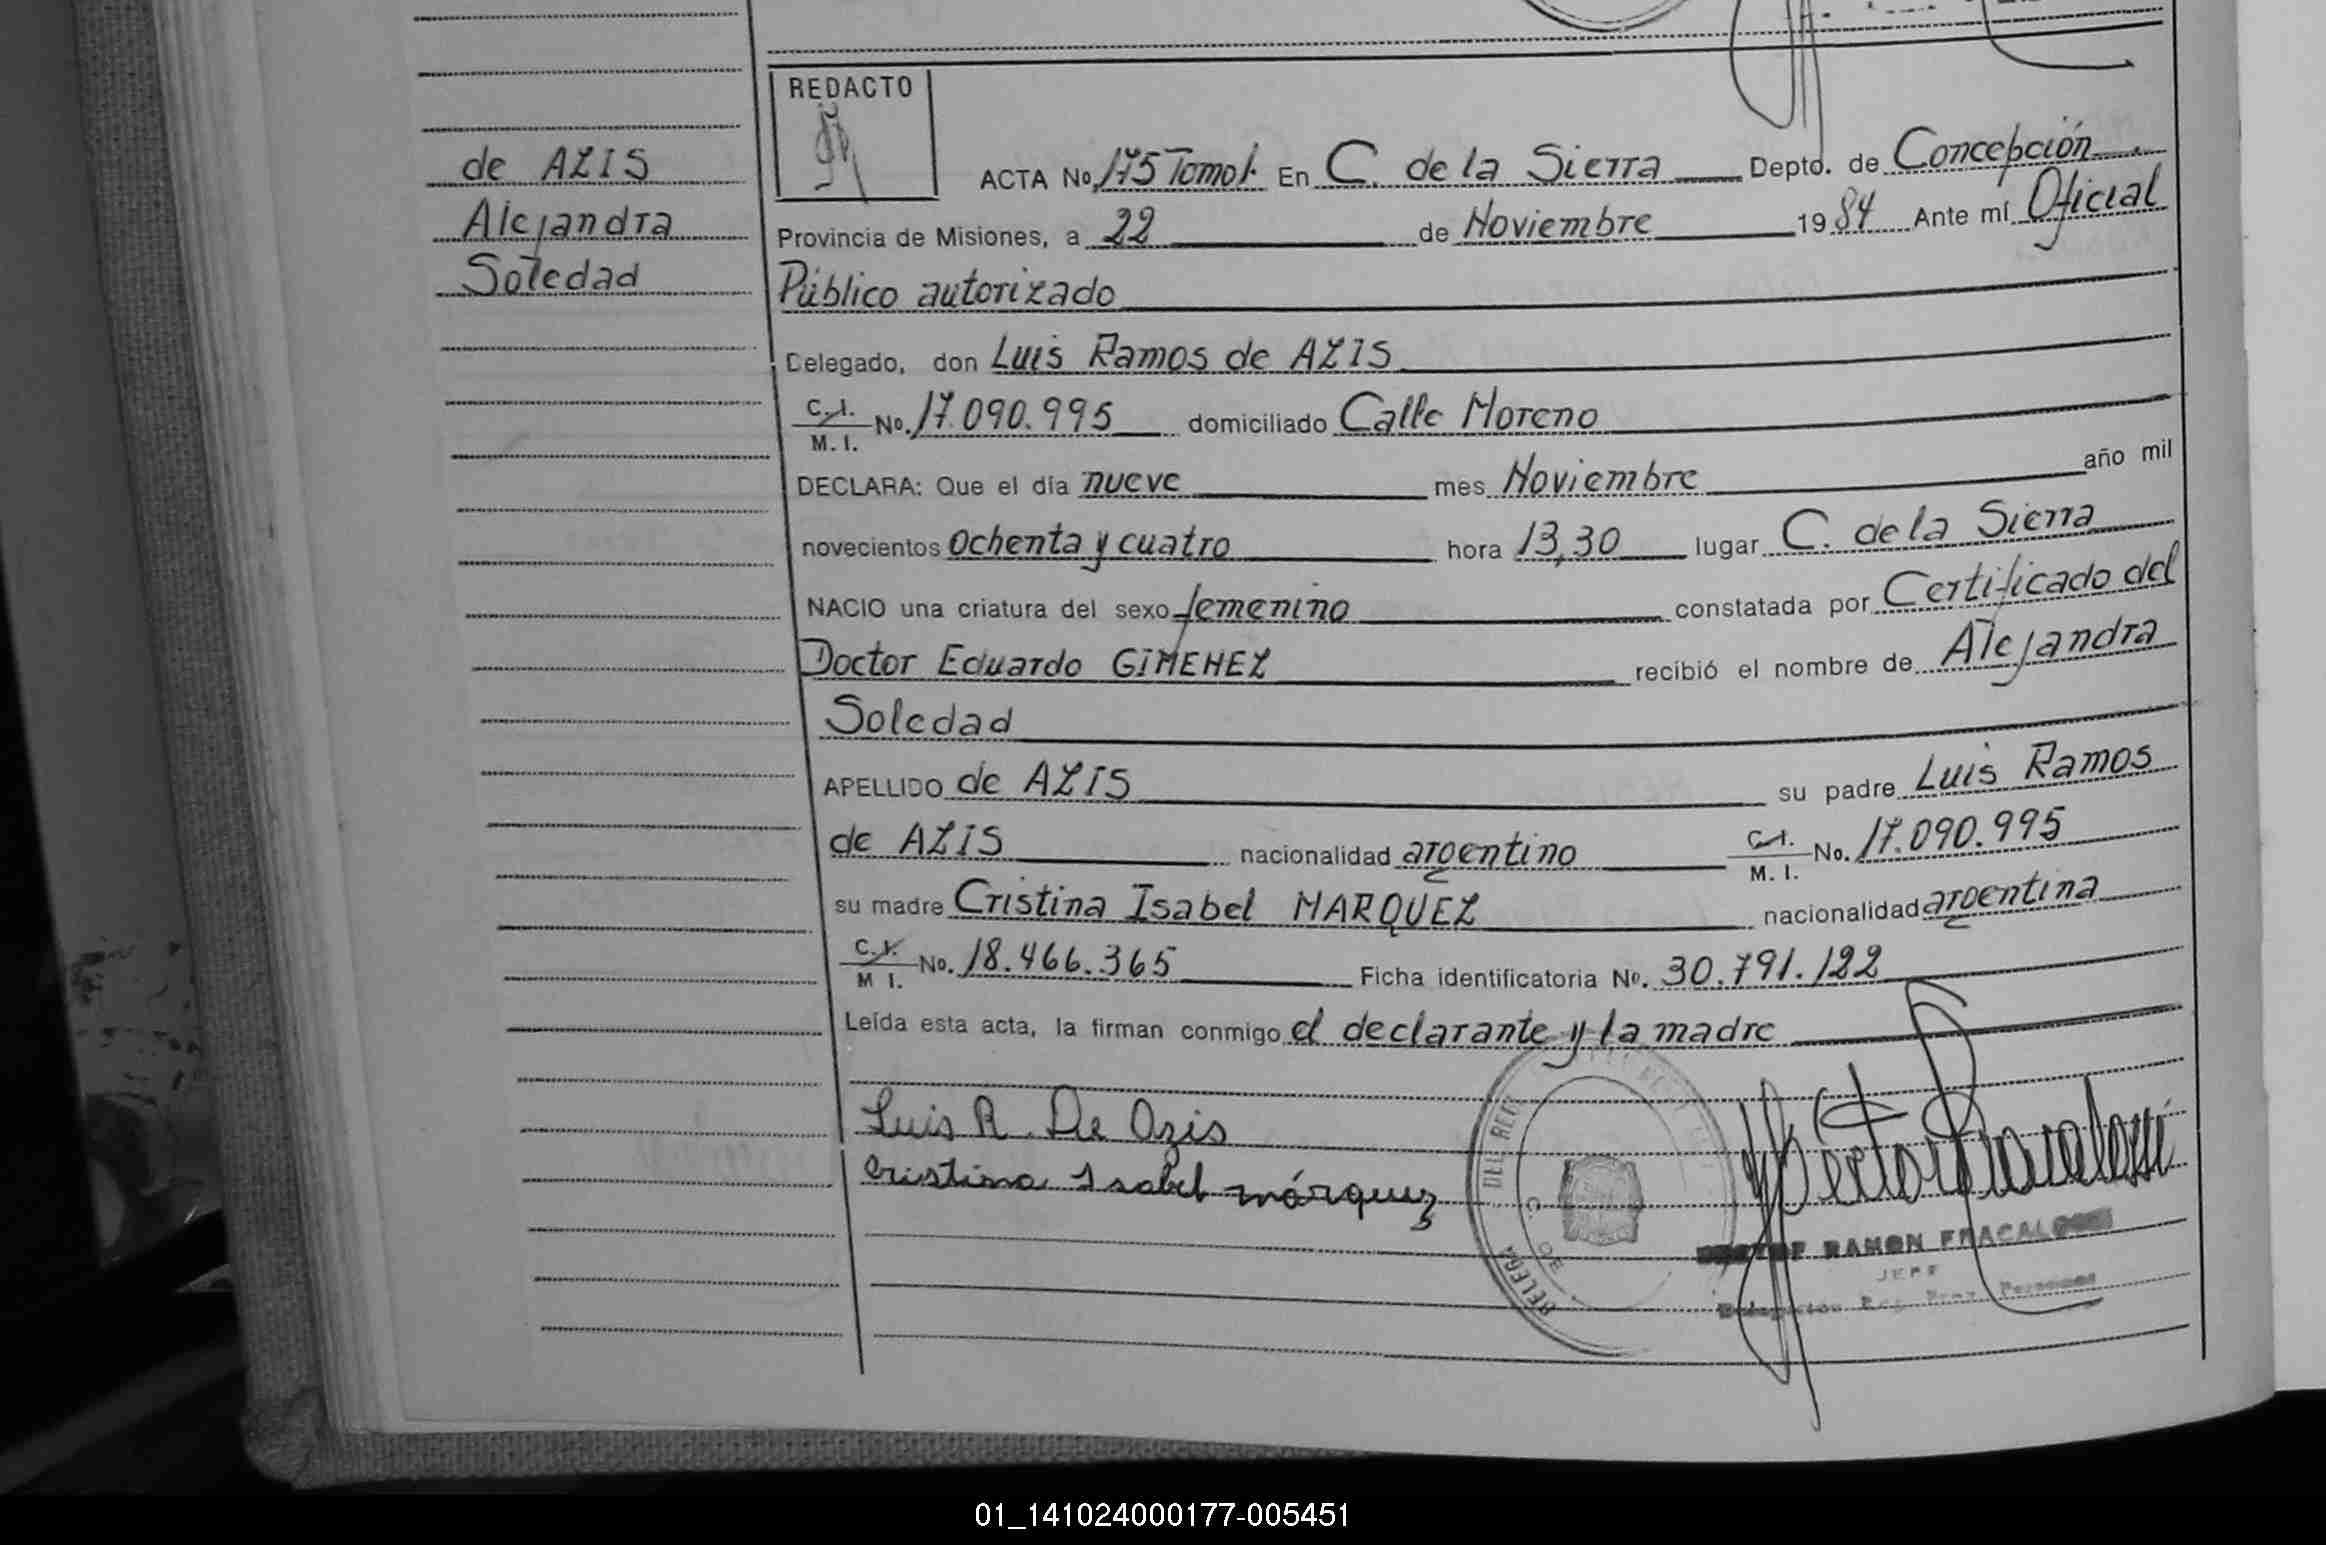 REDACTO
de AZIS
Alejandra
Soledad
ACTA No. 175 Tomo I. En C. de la Sierra Depto. de Concepción
Provincia de Misiones, a 22 de Noviembre 1984 Ante mí Oficial
Público autorizado
Delegado, don Luis Ramos de AZIS
C.I. M.I. No. 17.090.995 domiciliado Calle Moreno
DECLARA: Que el día nueve mes Noviembre año mil
novecientos ochenta y cuatro hora 13,30 lugar C. de la Sierra
NACIO una criatura del sexo femenino constatada por Certificado del
Doctor Eduardo GIMENEZ recibió el nombre de Alejandra
Soledad
APELLIDO de AZIS su padre Luis Ramos
de AZIS nacionalidad argentino C.I. M.I. No. 17.090.995
su madre Cristina Isabel MARQUEZ nacionalidad argentina
C.I. M I. No. 18.466.365 Ficha identificatoria No. 30.791.122
Leída esta acta, la firman conmigo el declarante y la madre
Luis R. De Azis
Cristina Isabel márquez
RAMON FRACALOSSI
JEFE
01_141024000177-005451